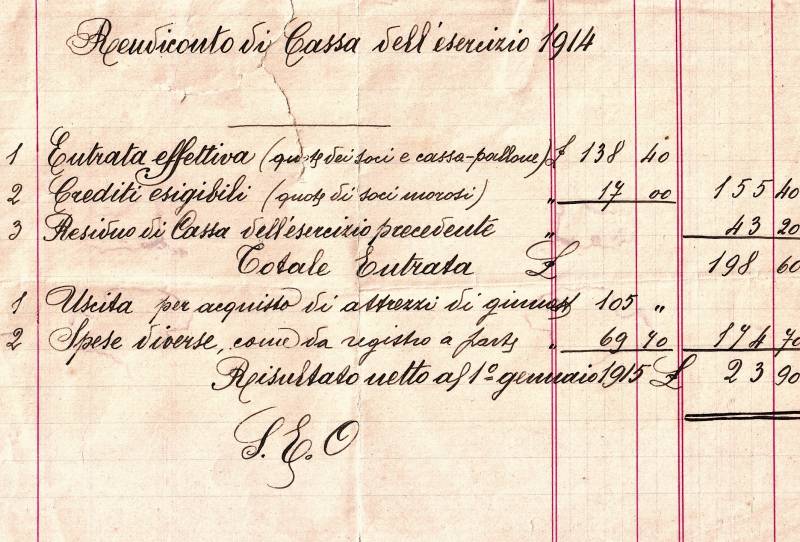 Rendiconto di Cassa dell'esercizio 1914
1 Entrata effettiva (quote dei soci e cassa-pallone) £ 138 40
2 Crediti esigibili (quote di soci morosi) „ 17 00 155 40
3 Residuo di Cassa dell'esercizio precedente „ 43 20
Totale Entrata £ 198 60
1 Uscita per acquisto di attrezzi di ginnast 105 „
2 Spese diverse, come da registro a parte „ 69 70 174 70
Risultato netto al 1º gennaio 1915 £ 23 90
S. E. O